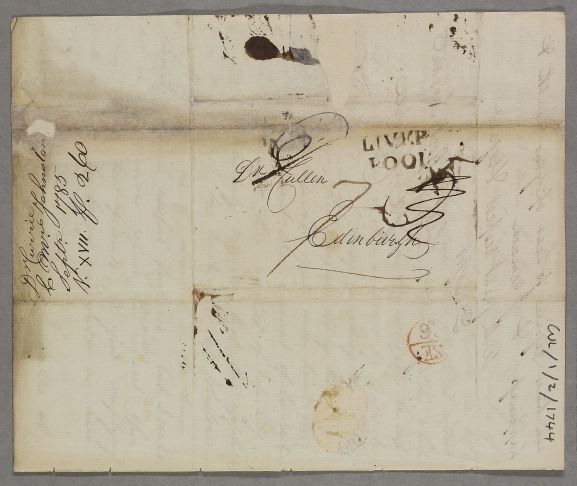 LIVER
POOL
Dr. Cullen
7
Edinburgh
Dr Currie
C. Mrs Johnston
Septr. 1785
N. XVII. ff. 260
SE
CUL/1/2/1744